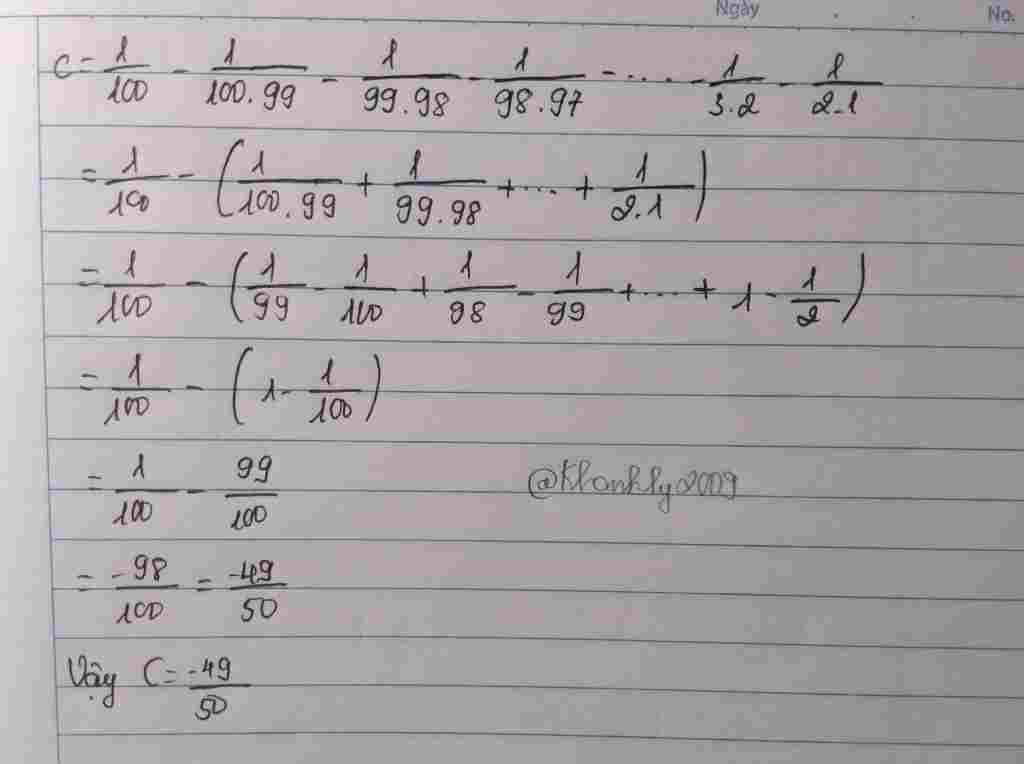 Ngày No.
C = 1/100 - 1/100.99 - 1/99.98 - 1/98.97 - .... - 1/3.2 - 1/2.1
= 1/100 - (1/100.99 + 1/99.98 + ... + 1/2.1)
= 1/100 - (1/99 - 1/100 + 1/98 - 1/99 + ... + 1 - 1/2)
= 1/100 - (1 - 1/100)
= 1/100 - 99/100
@Khanhly2009
= -98/100 = -49/50
Vậy C = -49/50